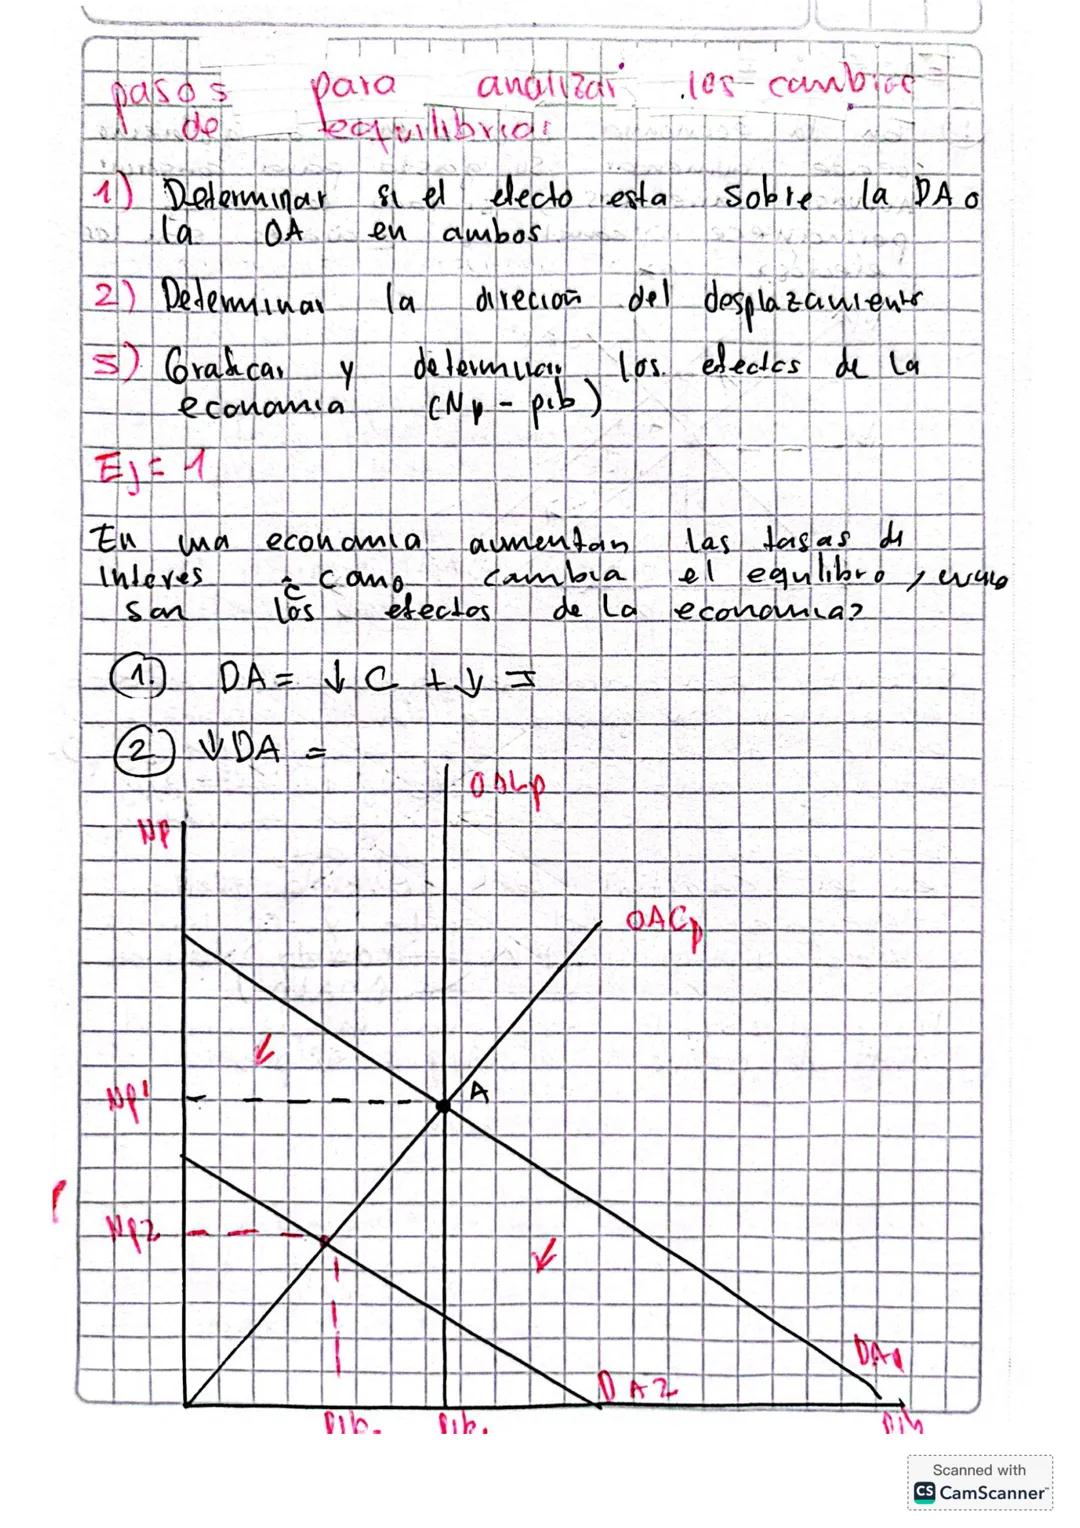 pasos para analizar los cambios
de equilibrio:
1) Determinar si el efecto esta sobre la DA o
la OA en ambos
2) Determinar la direcion del desplazamiento
3) Graficar y determinar los efectos de la
economia (Np - pib)
Ej = 1
En una economia aumentan las tasas de
interes ¿ como cambia el equlibro, cuales
son los efectos de la economia?
1. DA = ↓ C + ↓ I
2 ↓ DA =
OALp
NP
OACp
A
Np1
Np2
DA1
DA2
Pib2 Pib1 Pib
Scanned with
CS CamScanner